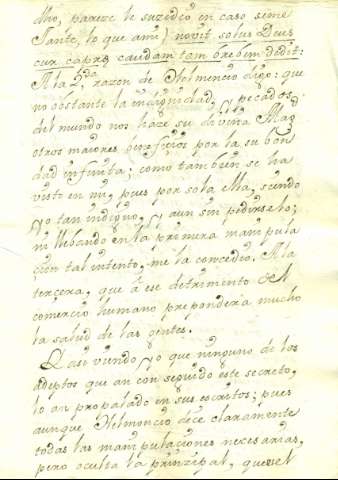 dho, pareze le suzediò en caso seme
Jante, lo que ami) novit solus Deus
cur capre caudam tam brebem dedit:
A la 2.da razon de Helmoncio digo: que
no obstante la indignidad, y pecados
del mundo nos haze su divina Mag.d
otros maiores beneficios por la su bon
dad infinita; como tambien se ha
visto en mi, pues por sola ella, siendo
yo tan indigno, y aun sin pedirselo;
ni llebando en la primera manipula
cion tal intento, me la concediò. A la
terzera, que à ese detrimento del
comercio humano prepondera mucho
la salud de las gentes.
Y assi viendo yo que ninguno de los
adeptos que an conseguido este secreto,
lo an propalado en sus escritos; pues
aunque Helmoncio dice claramente
todas las manipulaciones necesarias,
pero oculta la prinzipal, que es el